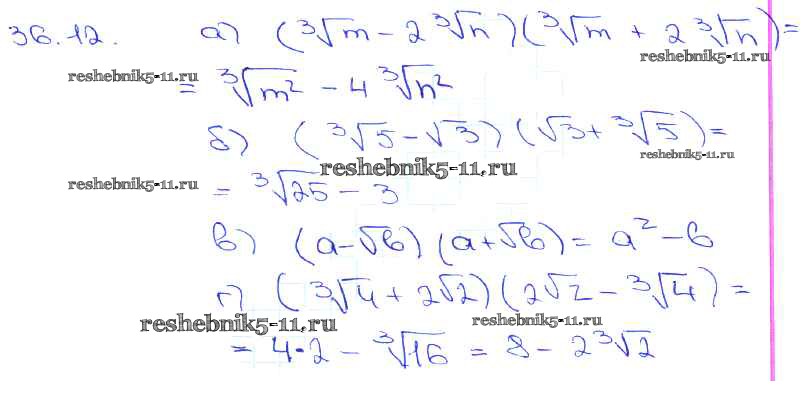 36.12. а) (∛m - 2∛n)(∛m + 2∛n) =
reshebnik5-11.ru
reshebnik5-11.ru
= ∛m² - 4∛n²
б) (∛5 - √3)(√3 + ∛5) =
reshebnik5-11.ru
reshebnik5-11.ru
reshebnik5-11.ru
= ∛25 - 3
в) (a - √b)(a + √b) = a² - b
г) (∛4 + 2√2)(2√2 - ∛4) =
reshebnik5-11.ru
reshebnik5-11.ru
= 4·2 - ∛16 = 8 - 2∛2